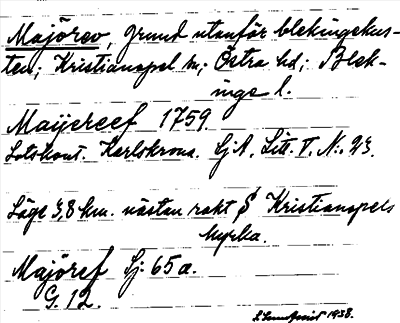 Majörev, grund utanför blekingekus-
ten; Kristianopel sn; Östra hd; Blek-
inge l.
Maijereef 1759.
Lotskont. Karlskrona. SjA, Litt. V, N: 93.
Läge 3,8 km. nästan rakt S Kristianopels
kyrka.
Majöref Sj. 65 a.
G. 12.
1938.